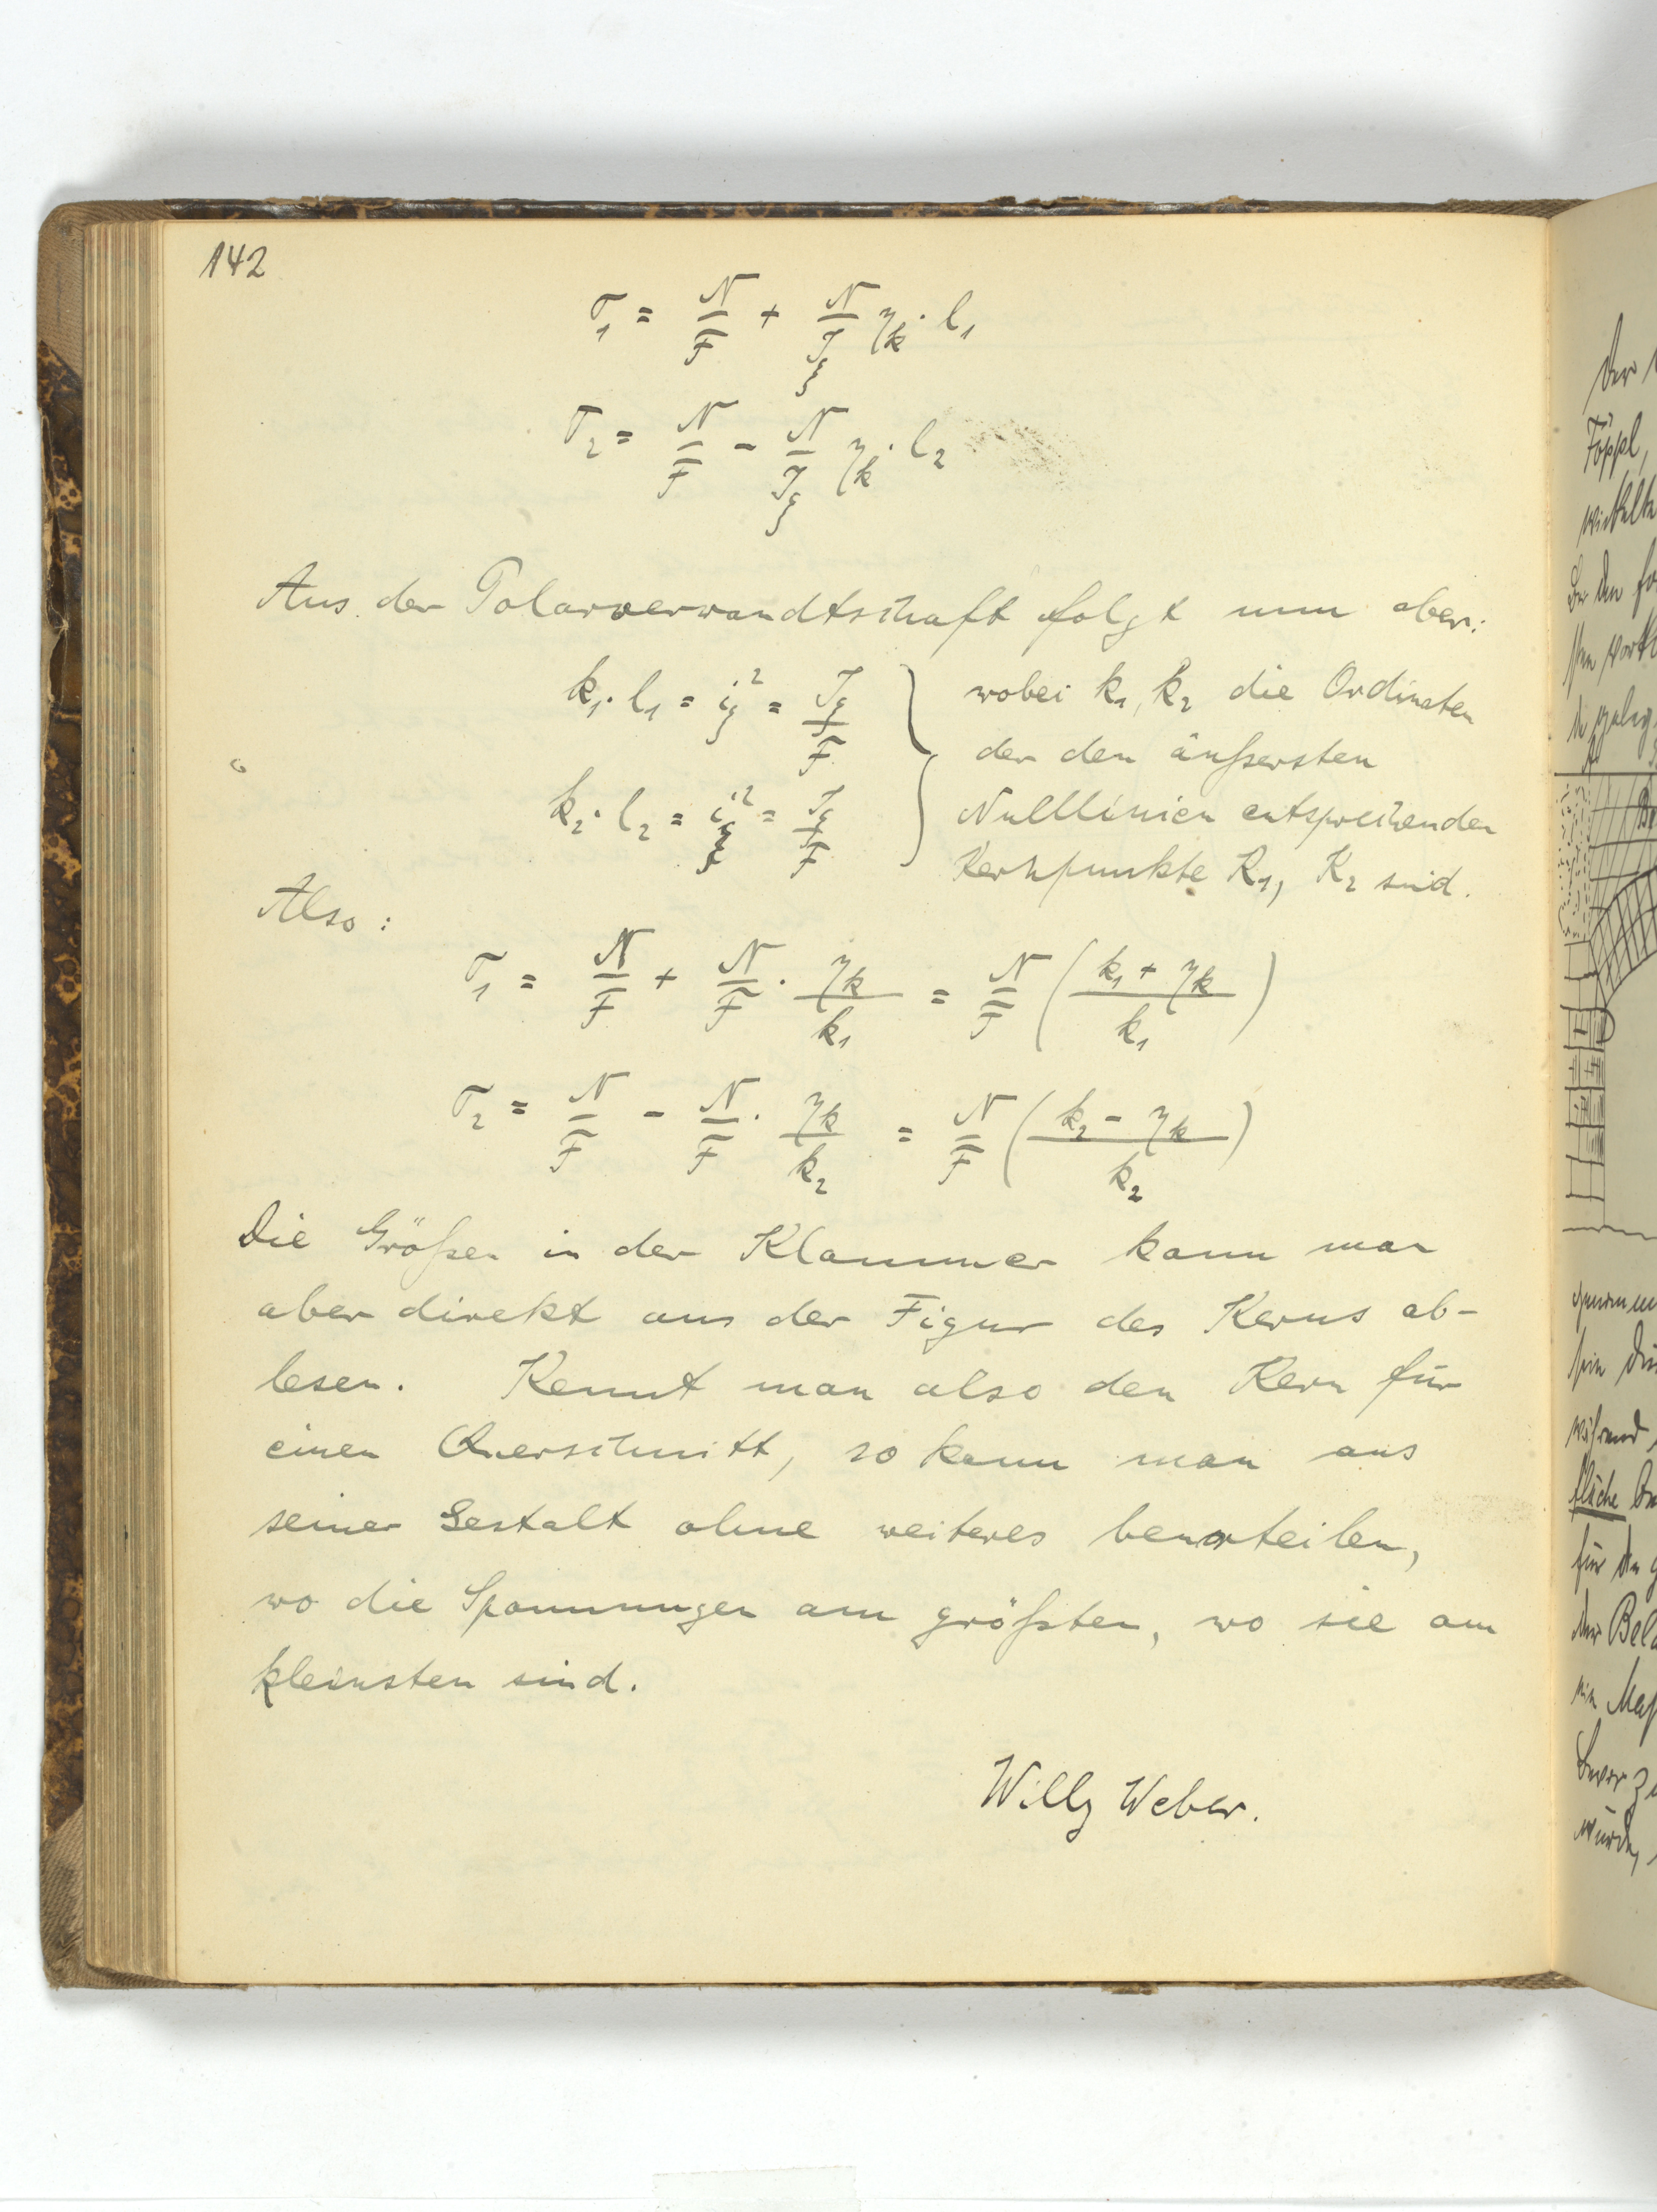 142
σ₁ = N/F + N/J_ξ η_k · l₁
σ₂ = N/F − N/J_ξ η_k · l₂
Aus der Polarverwandtschaft folgt nun aber:
k₁ · l₁ = i_ξ² = J_ξ/F } wobei k₁, k₂ die Ordinaten
der den äußersten
k₂ · l₂ = i_ξ² = J_ξ/F } Nulllinien entsprechenden
Kernpunkte K₁, K₂ sind.
Also:
σ₁ = N/F + N/F · η_k/k₁ = N/F ( (k₁ + η_k)/k₁ )
σ₂ = N/F − N/F · η_k/k₂ = N/F ( (k₂ − η_k)/k₂ )
Die Größen in der Klammer kann man
aber direkt aus der Figur des Kerns ab-
lesen. Kennt man also den Kern für
einen Querschnitt, so kann man aus
seiner Gestalt ohne weiteres beurteilen,
wo die Spannungen am größten, wo sie am
kleinsten sind.
Willy Weber.
Der
Föppl,